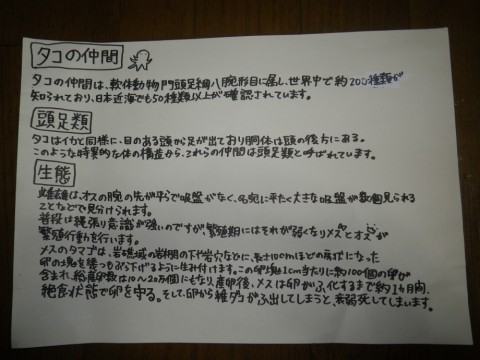 タコの仲間
タコの仲間は、軟体動物門頭足綱八腕形目に属し、世界中で約200種類が
知られており、日本近海でも50種類以上が確認されています。
頭足類
タコはイカと同様に、目のある頭から足が出ており胴体は頭の後方にある。
このような特異的な体の構造から、これらの仲間は頭足類と呼ばれています。
生態
雌雄は、オスの腕の先が平らで吸盤がなく、各腕に平たく大きな吸盤が数個見られる
ことなどで見分けられます。
普段は縄張り意識が強いのですが繁殖期にはそれが弱くなりメスとオスが
繁殖行動を行います。
メスのタマゴは、岩礁域の岩棚の下や岩穴などに、長さ10cmほどの房になった
卵の塊を幾つもぶら下げるように生み付けます。この卵塊1cm当たりに約100個の卵が
含まれ、総産卵数は10〜20万個にもなり、産卵後、メスは卵がふ化するまで約1ヵ月間、
絶食状態で卵を守る。そして、卵から稚ダコがふ出してしまうと、衰弱死してしまいます。